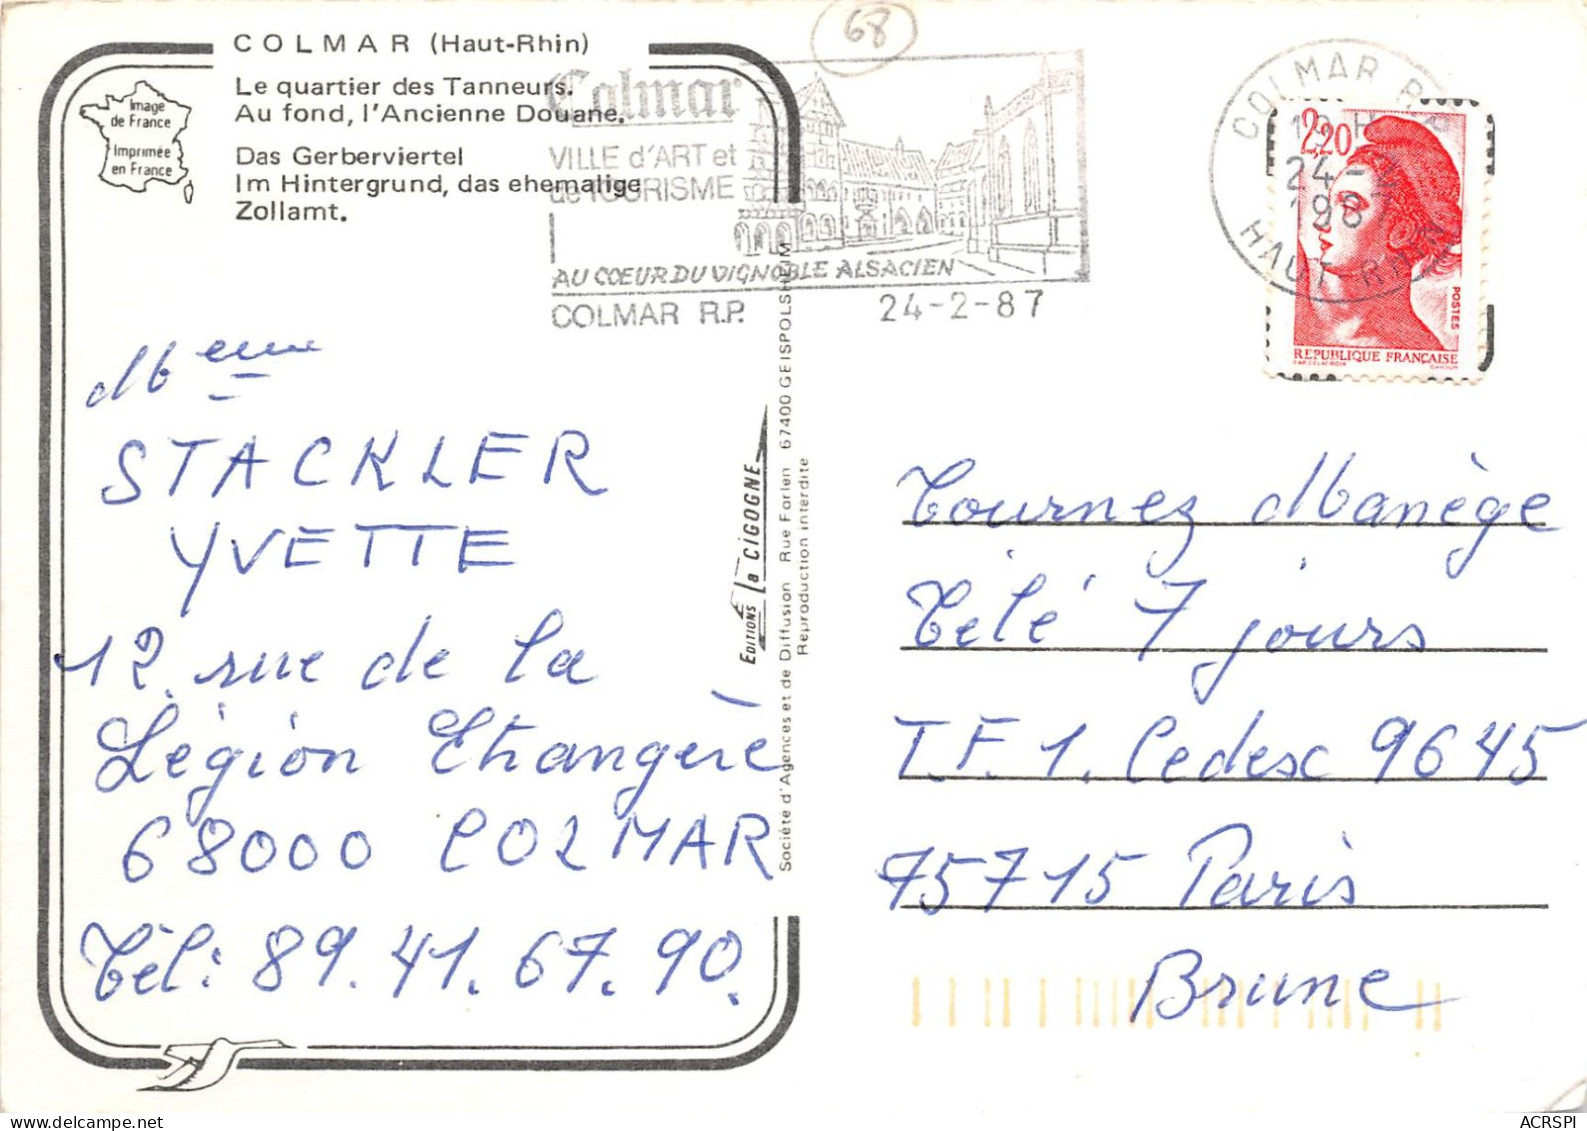 68
COLMAR (Haut-Rhin)
Le quartier des Tanneurs.
Au fond, l'Ancienne Douane.
Das Gerberviertel
Im Hintergrund, das ehemalige
Zollamt.
Image
de France
Imprimée
en France
Colmar
VILLE d'ART et
de TOURISME
AU CŒUR DU VIGNOBLE ALSACIEN
COLMAR R.P. 24-2-87
COLMAR R.P.
24-2
1987
HAUT-RHIN
2,20
POSTES
REPUBLIQUE FRANÇAISE
Meme
STACKLER
YVETTE
12 rue de la
Légion Etrangère
68000 COLMAR
Tèl: 89.41.67.90.
EDITIONS la CIGOGNE
Société d'Agences et de Diffusion Rue Forlen 67400 GEISPOLSHEIM
Reproduction interdite
Tournez Manège
Télé 7 jours
T.F.1. Cedesc 9645
75715 Paris
Brune
ACRSPI